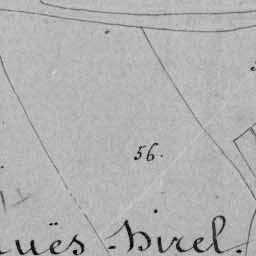 56.
uës hirel.